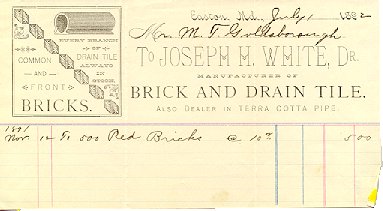 Easton, Md., July 1 1892
Mr. M. T. Goldsborough
To JOSEPH H. WHITE, Dr.
MANUFACTURER OF
BRICK AND DRAIN TILE.
ALSO DEALER IN TERRA COTTA PIPE.
EVERY BRANCH
OF
DRAIN TILE
ALWAYS
IN
STOCK.
COMMON
—AND—
FRONT
BRICKS.
1891
Nov. 12 To 500 Red Bricks @ 10°° 5 00